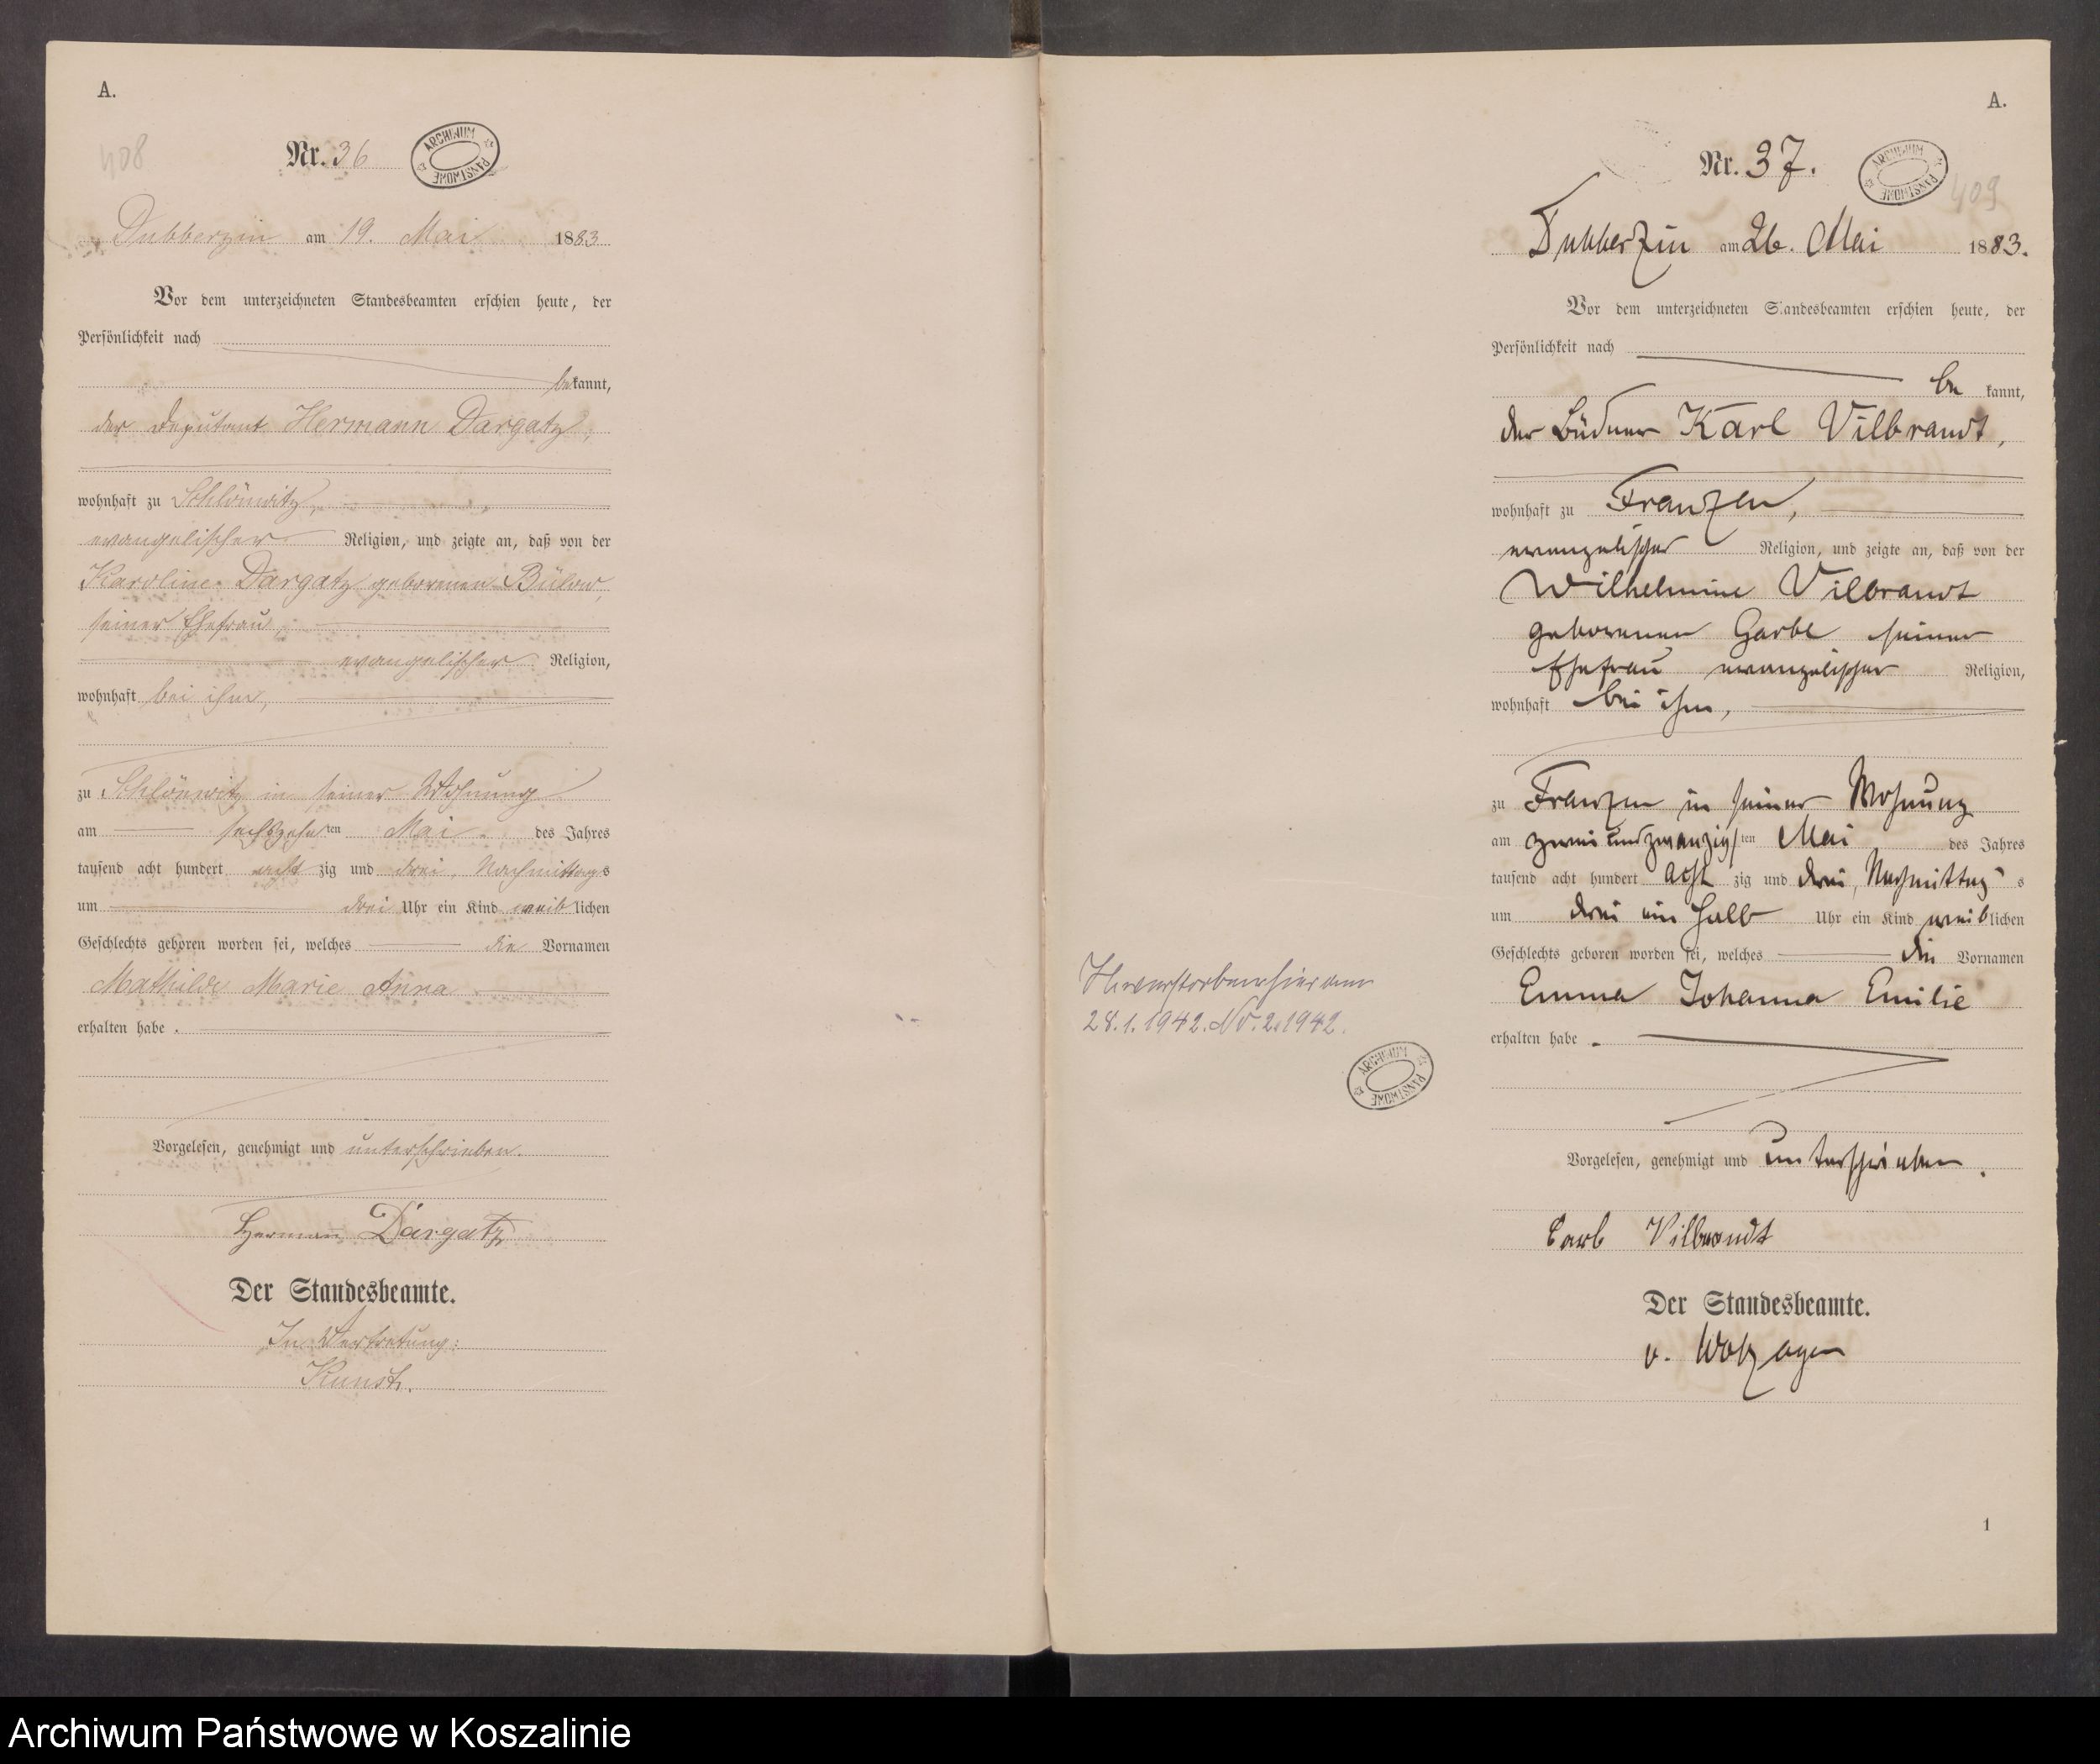 A.
408
Nr. 36
ARCHIWUM PAŃSTWOWE
Dubberzin am 19. Mai 1883
Vor dem unterzeichneten Standesbeamten erschien heute, der
Persönlichkeit nach
bekannt,
der Deputant Hermann Dargatz,
wohnhaft zu Schlönwitz,
evangelischer Religion, und zeigte an, daß von der
Karoline Dargatz geborenen Bülow,
seiner Ehefrau,
evangelischer Religion,
wohnhaft bei ihm,
zu Schlönwitz in seiner Wohnung
am sechszehnten Mai des Jahres
tausend acht hundert achtzig und drei, Nachmittags
um drei Uhr ein Kind weiblichen
Geschlechts geboren worden sei, welches die Vornamen
Mathilde Marie Anna
erhalten habe.
Vorgelesen, genehmigt und unterschrieben.
Hermann Dargatz
Der Standesbeamte.
In Vertretung:
A.
Nr. 37.
ARCHIWUM PAŃSTWOWE
409
Dubberzin am 26. Mai 1883.
Vor dem unterzeichneten Standesbeamten erschien heute, der
Persönlichkeit nach
bekannt,
der Büdner Karl Vilbrandt,
wohnhaft zu Franzen,
evangelischer Religion, und zeigte an, daß von der
Wilhelmine Vilbrandt
geborenen Garbe seiner
Ehefrau evangelischer Religion,
wohnhaft bei ihm,
zu Franzen in seiner Wohnung
am zwei und zwanzigsten Mai des Jahres
tausend acht hundert achtzig und drei, Nachmittags
um drei ein halb Uhr ein Kind weiblichen
Geschlechts geboren worden sei, welches die Vornamen
Emma Johanna Emilie
erhalten habe.
verstorben hier am
28.1.1942. Nr. 2.1942.
ARCHIWUM PAŃSTWOWE
Vorgelesen, genehmigt und unterschrieben.
Carl Vilbrandt
Der Standesbeamte.
v. Wolzogen
1
Archiwum Państwowe w Koszalinie